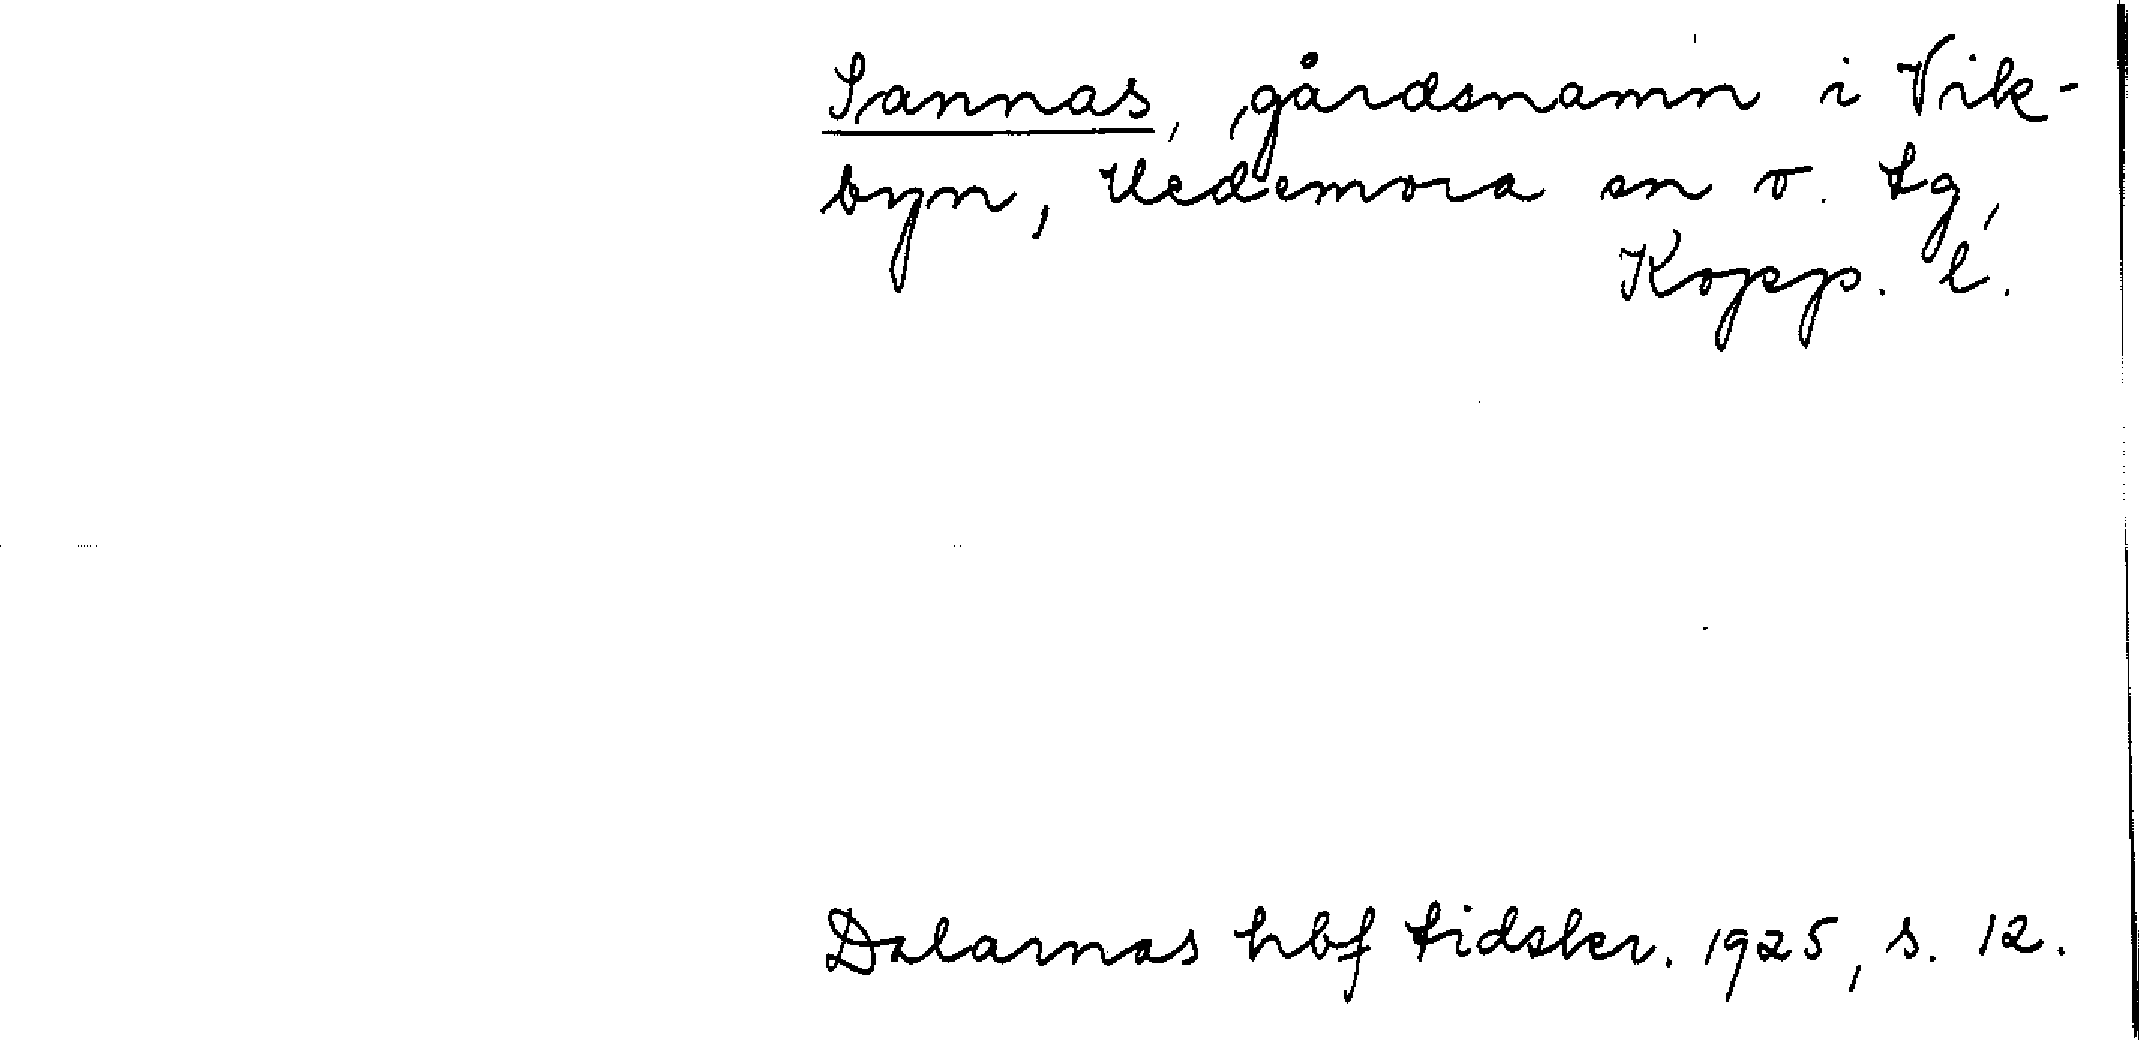 Sannas, gårdsnamn i Vik-
byn, Hedemora sn o. tg,
Kopp. l.
Dalarnas hbf tidskr. 1925, s. 12.